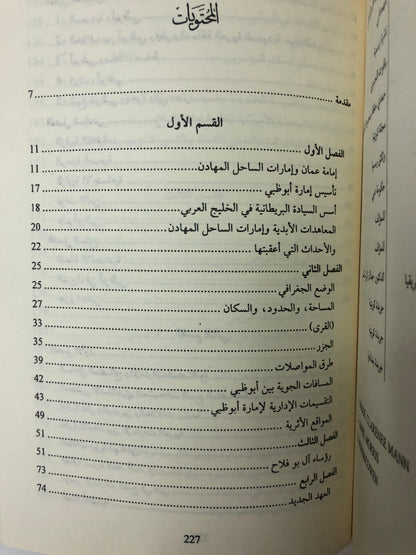 المحتويات
مقدمة ........ 7
القسم الأول
الفصل الأول ........ 11
إمامة عمان وإمارات الساحل المهادن ........ 11
تأسيس إمارة أبوظبي ........ 17
أسس السيادة البريطانية في الخليج العربي ........ 18
المعاهدات الأبدية وإمارات الساحل المهادن ........ 20
والأحداث التي أعقبتها ........ 22
الفصل الثاني ........ 25
الوضع الجغرافي ........ 25
المساحة، والحدود، والسكان ........ 27
(القرى) ........ 33
الجزر ........ 35
طرق المواصلات ........ 39
المسافات الجوية بين أبوظبي ........ 42
التقسيمات الإدارية لإمارة أبوظبي ........ 43
المواقع الأثرية ........ 49
الفصل الثالث ........ 51
رؤساء آل بو فلاح ........ 51
الفصل الرابع ........ 73
العهد الجديد ........ 74
227